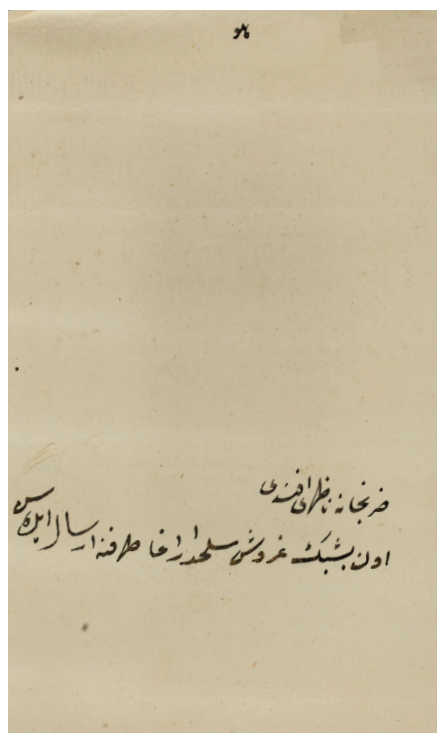 هو
ضربخانه ناظری افندی
اون بشبیك غروش سلحدار اغا طرفنه ارسال ایلیه سن